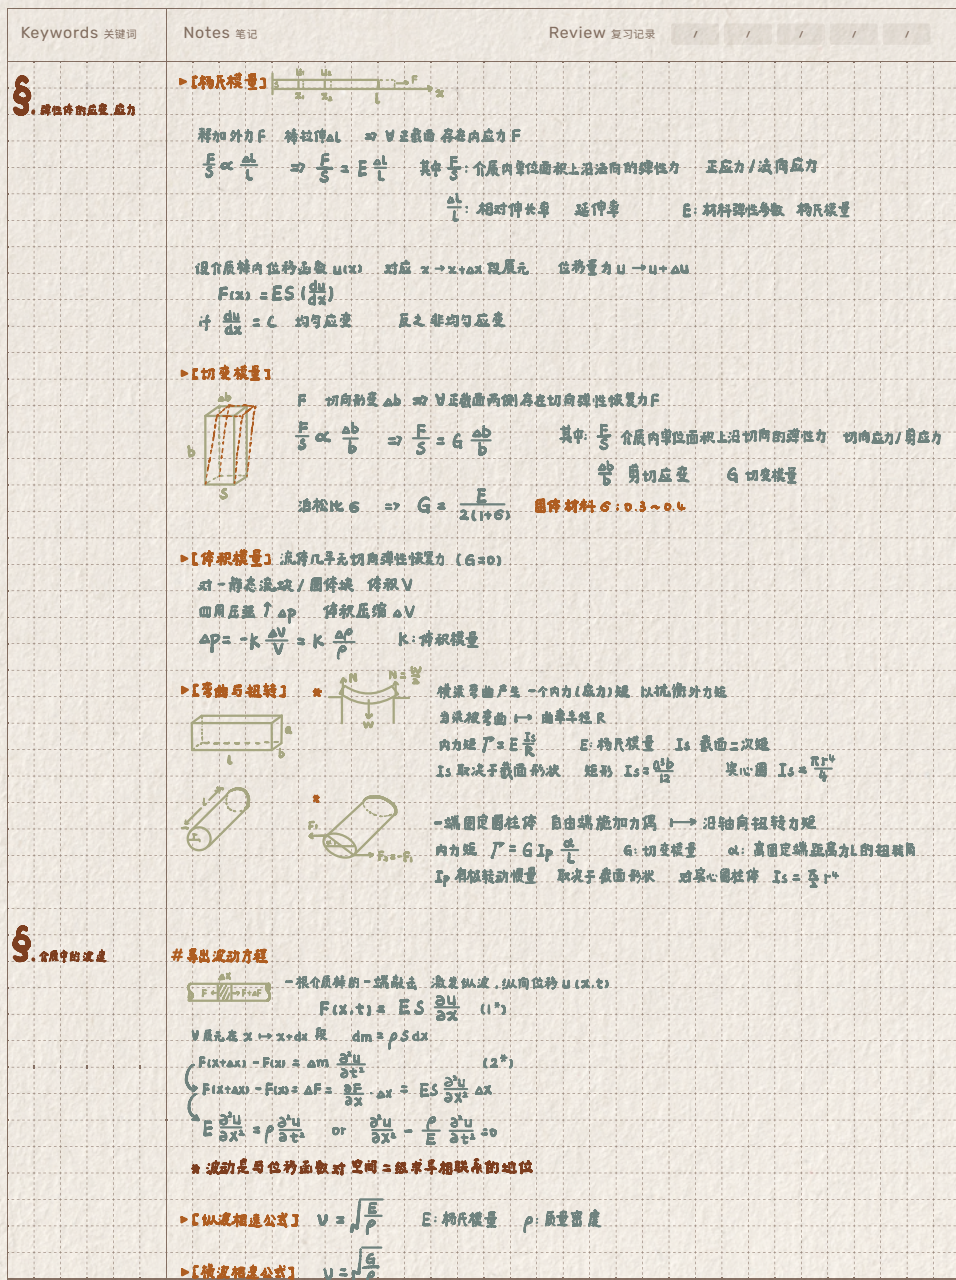 Keywords 关键词
Notes 笔记
Review 复习记录 / / / / /
§. 弹性体的应变 应力
▸[杨氏模量]
u₁ u₂ x₁ x₂ L F x
释加外力F 棒拉伸ΔL ⇒ ∀正截面 存在内应力F
F/S ∝ ΔL/L ⇒ F/S = E ΔL/L 其中 F/S: 介质内单位面积上沿法向的弹性力 正应力/法向应力
ΔL/L: 相对伸长率 延伸率 E: 材料弹性参数 杨氏模量
设介质棒内位移函数 u(x) 对应 x→x+Δx 段质元 位移量为 u→u+Δu
F(x) = ES (du/dx)
if du/dx = C 均匀应变 反之 非均匀应变
▸[切变模量]
Δb b S
F 切向形变 Δb ⇒ ∀正截面两侧存在切向弹性恢复力F
F/S ∝ Δb/b ⇒ F/S = G Δb/b 其中: F/S 介质内单位面积上沿切向的弹性力 切向应力/剪应力
Δb/b 剪切应变 G 切变模量
泊松比 σ ⇒ G = E/2(1+σ) 固体材料 σ: 0.3~0.4
▸[体积模量] 流体几乎无切向弹性恢复力 (G=0)
对一静态流块/固体块 体积V
四周压强↑Δp 体积压缩ΔV
Δp = -K ΔV/V = K Δρ/ρ K: 体积模量
▸[弯曲与扭转] *
N N=W/2 W
a b L
横梁弯曲产生 一个内力(应力)矩 以抗衡外力矩
当梁被弯曲 ↦ 曲率半径R
内力矩 Γ = E Is/R E: 杨氏模量 Is 截面二次矩
Is取决于截面形状 矩形 Is = a³b/12 实心圆 Is = πr⁴/4
*
L r F₁ F₂=-F₁
一端固定圆柱体 自由端施加力偶 ↦ 沿轴向扭转力矩
内力矩 Γ = G Ip α/L G: 切变模量 α: 离固定端距离为L的扭转角
Ip 为极转动惯量 取决于截面形状 对实心圆柱体 Is = π/2 r⁴
§. 介质中的波速
# 导出波动方程
Δx F F+ΔF
一根介质棒的一端敲击 激发纵波, 纵向位移 u(x,t)
F(x,t) = ES ∂u/∂x (1*)
∀质元在 x ↦ x+dx 段 dm = ρSdx
F(x+Δx) - F(x) = Δm ∂²u/∂t² (2*)
F(x+Δx) - F(x) = ΔF = ∂F/∂x · Δx = ES ∂²u/∂x² Δx
E ∂²u/∂x² = ρ ∂²u/∂t² or ∂²u/∂x² - ρ/E ∂²u/∂t² = 0
* 波动是与位移函数对空间二级求导相联系的
▸[纵波相速公式] v = √E/ρ E: 杨氏模量 ρ: 质量密度
▸[横波相速公式] v = √G/ρ